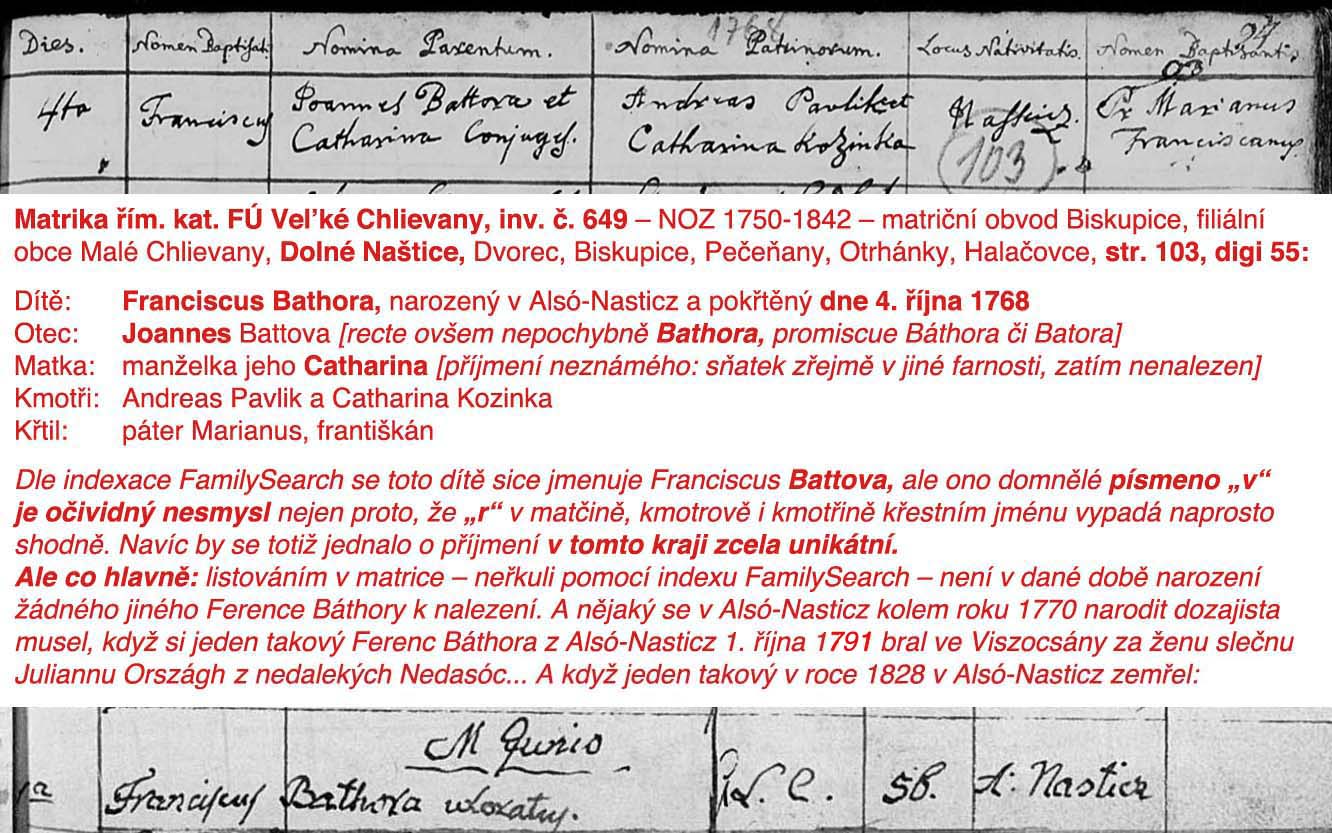 1768
94
Dies. Nomen Baptisati Nomina Parentum. Nomina Patrinorum. Locus Nativitatis. Nomen Baptizantis
4ta Franciscus Joannes Battora et Andreas Pavlik et Nasticz. Pr Marianus
Catharina Conjuges. Catharina Kozinka (103) Franciscanus
Matrika řím. kat. FÚ Veľké Chlievany, inv. č. 649 – NOZ 1750-1842 – matriční obvod Biskupice, filiální
obce Malé Chlievany, Dolné Naštice, Dvorec, Biskupice, Pečeňany, Otrhánky, Halačovce, str. 103, digi 55:
Dítě: Franciscus Bathora, narozený v Alsó-Nasticz a pokřtěný dne 4. října 1768
Otec: Joannes Battova [recte ovšem nepochybně Bathora, promiscue Báthora či Batora]
Matka: manželka jeho Catharina [příjmení neznámého: sňatek zřejmě v jiné farnosti, zatím nenalezen]
Kmotři: Andreas Pavlik a Catharina Kozinka
Křtil: páter Marianus, františkán
Dle indexace FamilySearch se toto dítě sice jmenuje Franciscus Battova, ale ono domnělé písmeno „v“
je očividný nesmysl nejen proto, že „r“ v matčině, kmotrově i kmotřině křestním jménu vypadá naprosto
shodně. Navíc by se totiž jednalo o příjmení v tomto kraji zcela unikátní.
Ale co hlavně: listováním v matrice – neřkuli pomocí indexu FamilySearch – není v dané době narození
žádného jiného Ference Báthory k nalezení. A nějaký se v Alsó-Nasticz kolem roku 1770 narodit dozajista
musel, když si jeden takový Ferenc Báthora z Alsó-Nasticz 1. října 1791 bral ve Viszocsány za ženu slečnu
Juliannu Országh z nedalekých Nedasóc... A když jeden takový v roce 1828 v Alsó-Nasticz zemřel:
M Junio
Franciscus Bathora uxoratus. R. C. 58. A: Nasticz